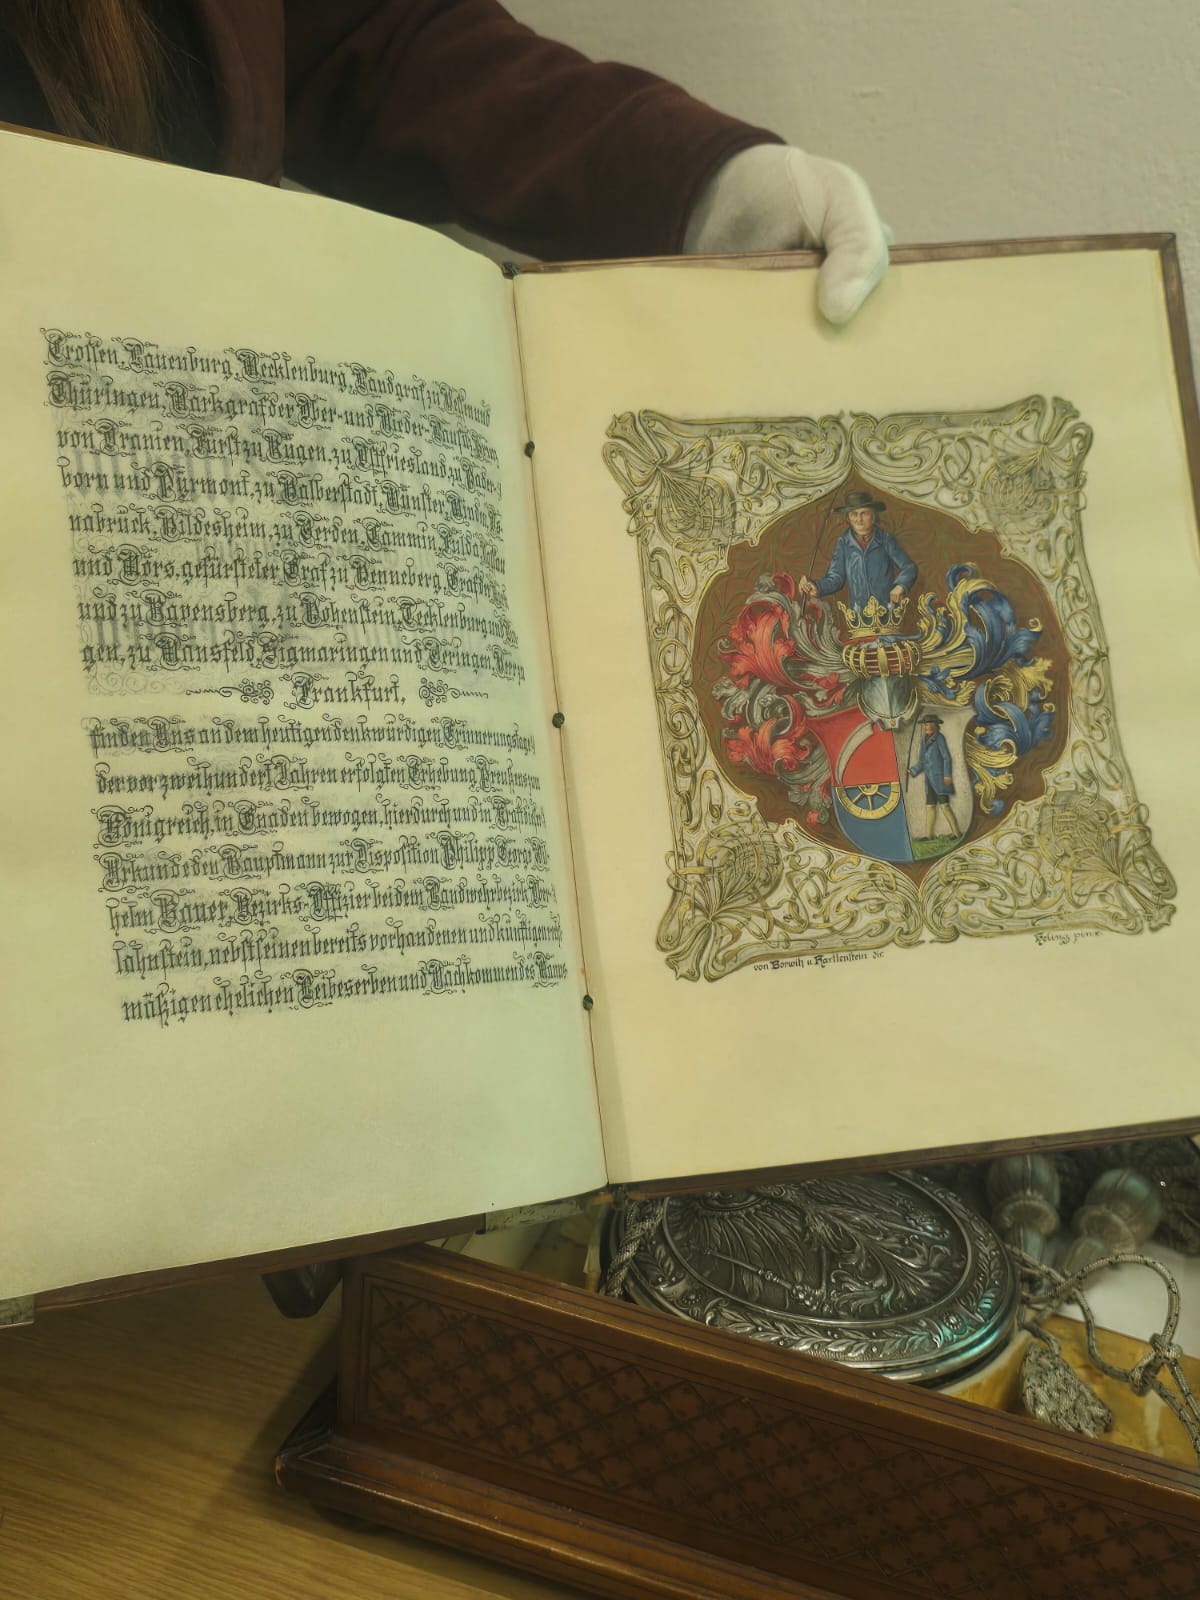 Crossen, Lauenburg, Mecklenburg, Landgraf zu Hessen und
Thüringen, Markgraf der Ober- und Nieder-Lausitz, Prinz
von Oranien, Fürst zu Rügen, zu Ostfriesland, zu Pader-
born und Pyrmont, zu Halberstadt, Münster, Minden, Os-
nabrück, Hildesheim, zu Verden, Cammin, Fulda, Nassau
und Mörs, gefürsteter Graf zu Henneberg, Graf der Mark
und zu Ravensberg, zu Hohenstein, Tecklenburg und Lin-
gen, zu Mansfeld, Sigmaringen und Veringen, Herr zu
Frankfurt,
finden Uns an dem heutigen denkwürdigen Erinnerungstage
der vor zweihundert Jahren erfolgten Erhebung Preußens zum
Königreich, in Gnaden bewogen, hierdurch und in Kraft dieser
Urkunde den Hauptmann zur Disposition Philipp George Wil-
helm Bauer, Bezirks-Offizier bei dem Landwehrbezirk Ober-
lahnstein, nebst seinen bereits vorhandenen und künftigen recht-
mäßigen ehelichen Leibeserben und Nachkommen des Manns-
von Borwitz u. Harttenstein dir.
Heling pinx.